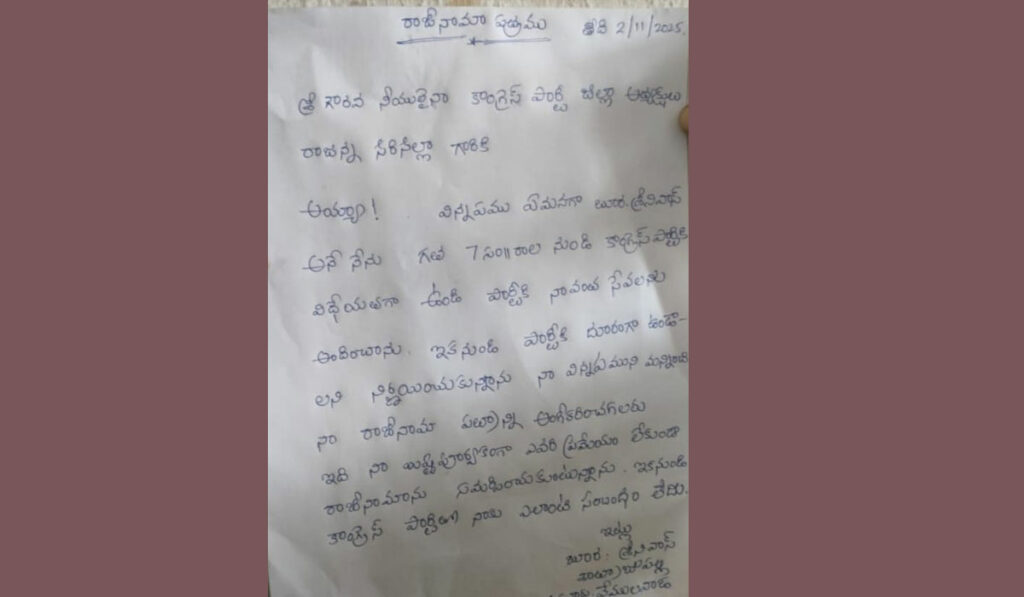 రాజీనామా పత్రము తేది 2/11/2025.
శ్రీ గౌరవ నీయులైనా కాంగ్రెస్ పార్టీ జిల్లా అధ్యక్షులు
రాజన్న సిరిసిల్లా గారికి
అయ్యా! విన్నపము ఏమనగా బూర. శ్రీనివాస్
అనే నేను గత 7 సం॥రాల నుండి కాంగ్రెస్ పార్టీకి
విధేయతగా ఉండి పార్టీకి నావంతు సేవలను
అందించాను. ఇకనుండి పార్టీకి దూరంగా ఉండా-
లని నిర్ణయించుకున్నాను నా విన్నపముని మన్నించి
నా రాజీనామా పత్రాన్ని అంగీకరించగలరు
ఇది నా ఇష్టపూర్వకంగా ఎవరి ప్రమేయం లేకుండా
రాజీనామాను సమర్పించుకుంటున్నాను. ఇకనుండి
కాంగ్రెస్ పార్టీతో నాకు ఎలాంటి సంబంధం లేదు.
ఇట్లు
బూర. శ్రీనివాస్
వేములవాడ